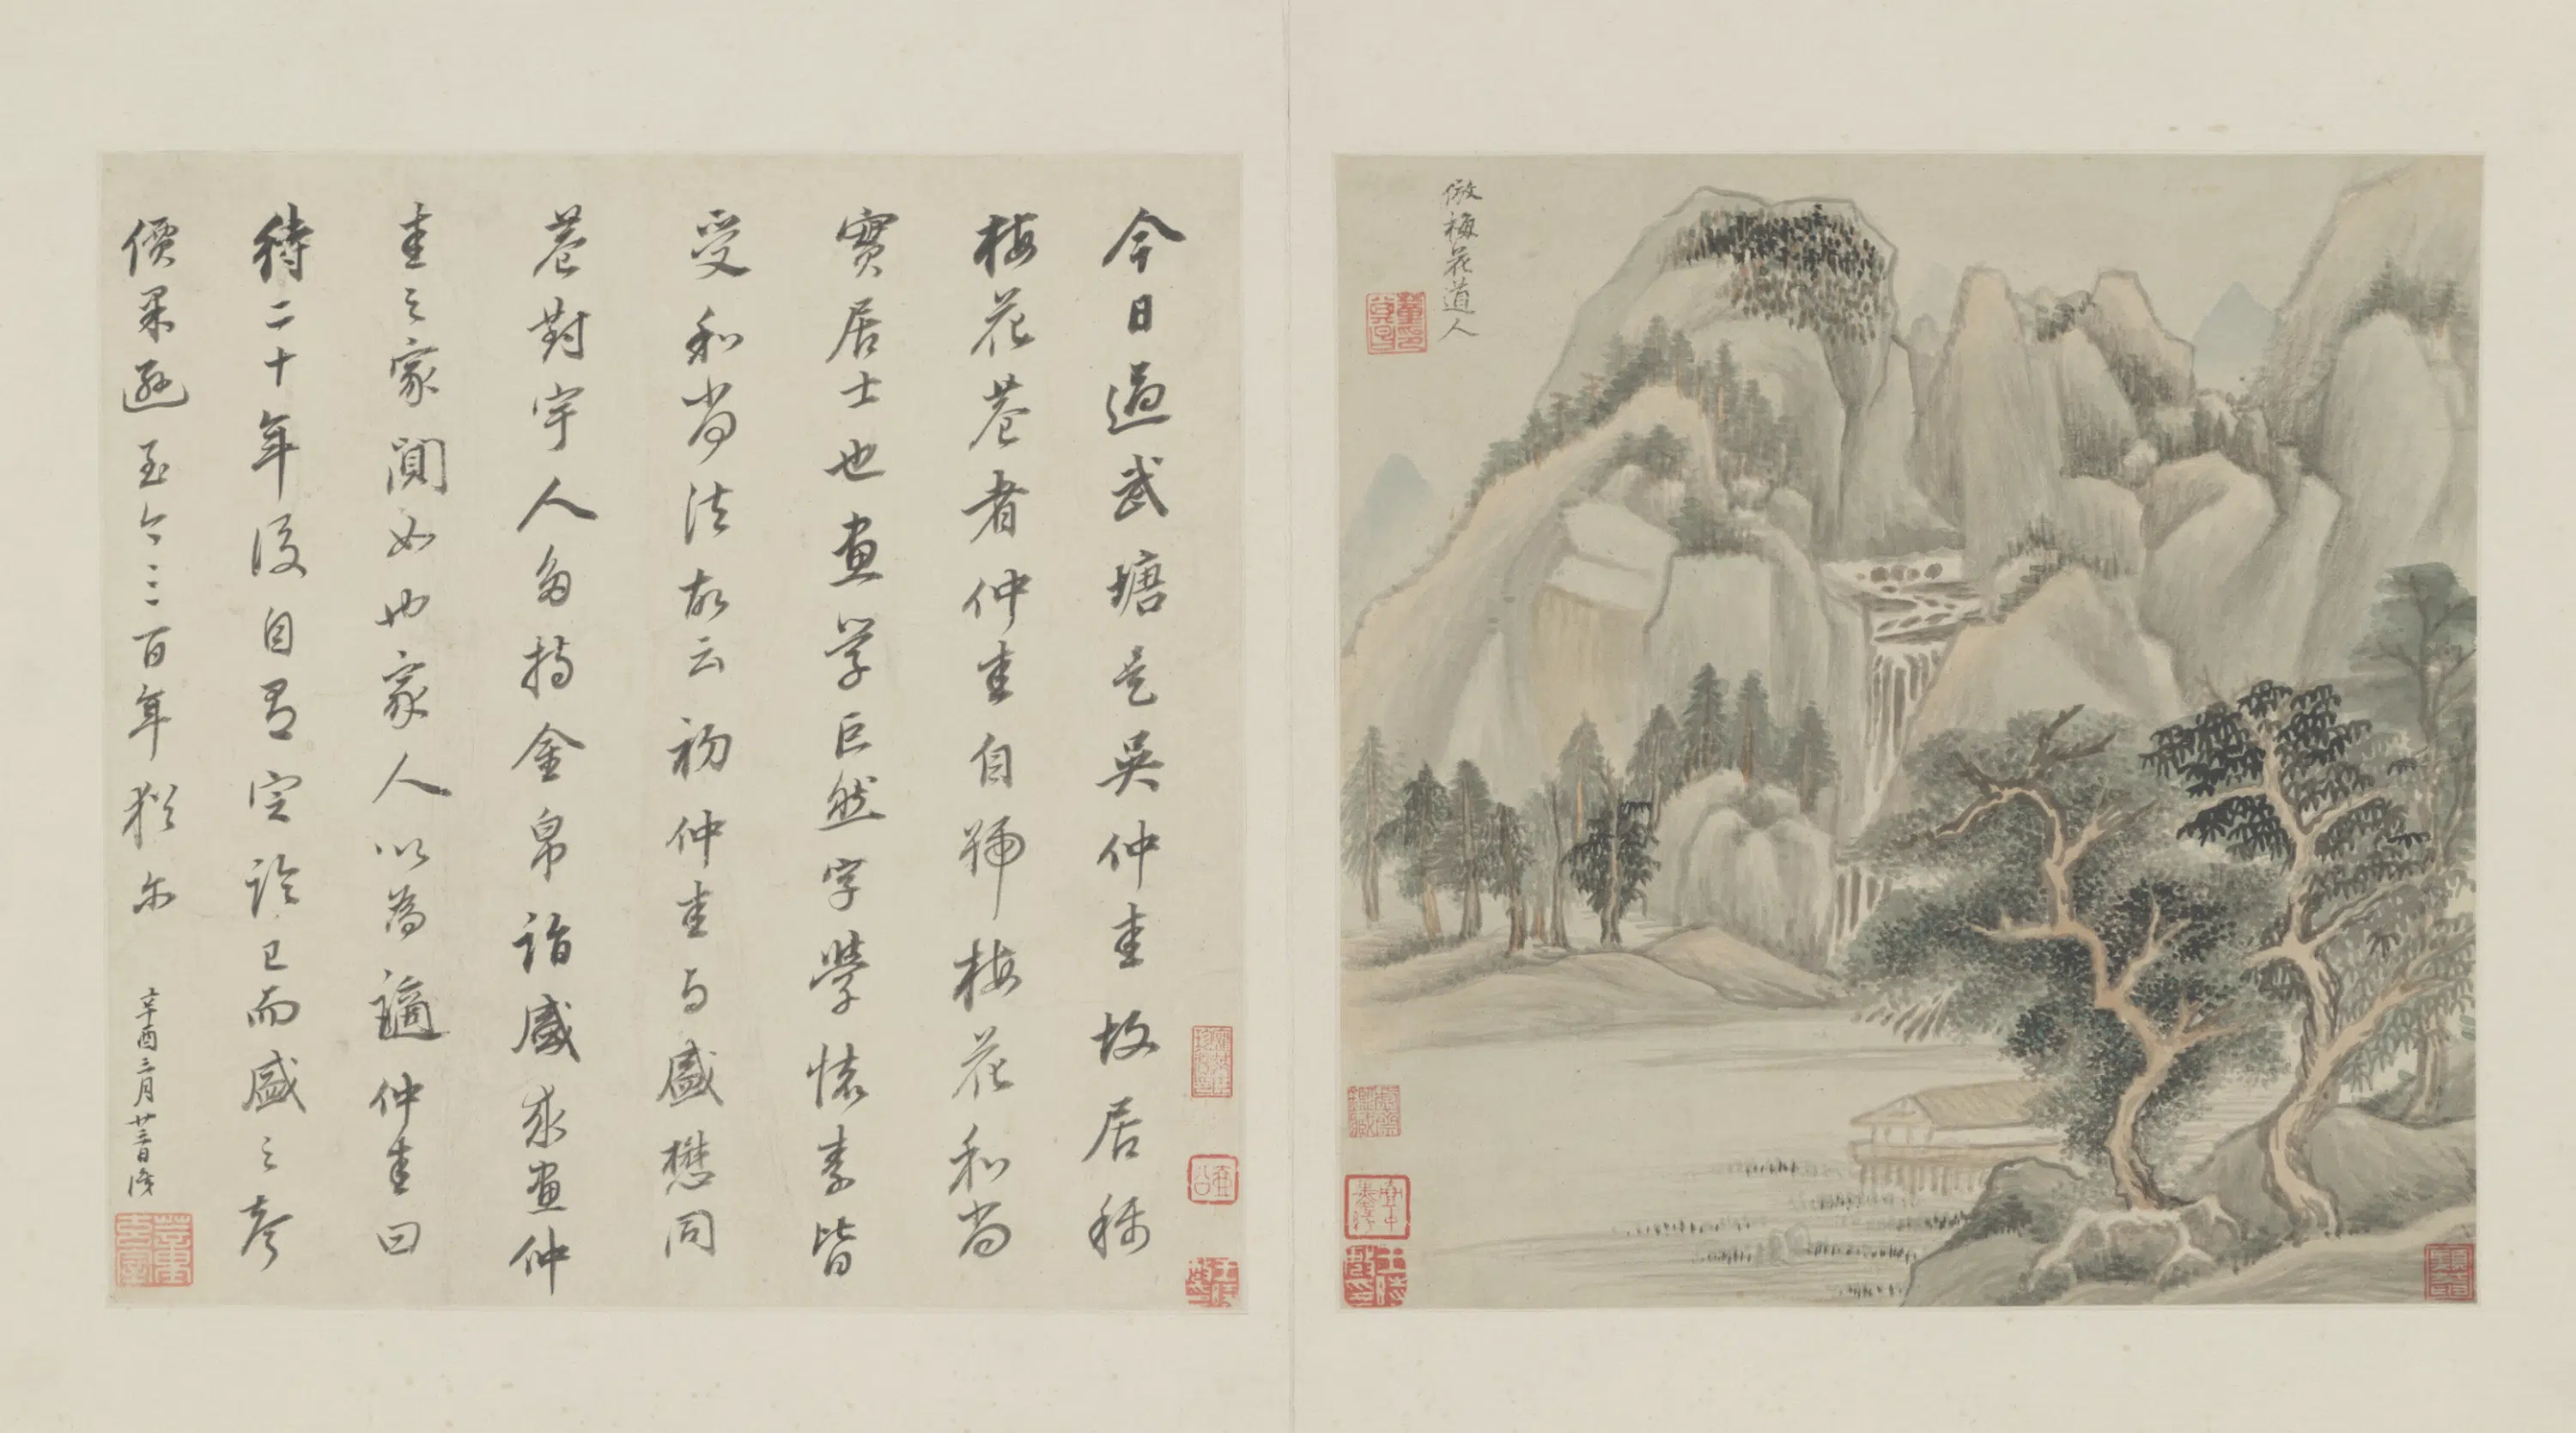 倣梅花道人
今日過武塘是吳仲圭故居称
梅花菴者仲圭自號梅花和尚
實居士也畫學巨然字學懷素皆
受和尚法故云初仲圭与盛懋同
菴對宇人多持金帛詣盛求畫仲
圭之家闃如也家人以為謫仲圭曰
待二十年後自有定論已而盛之声
價果遜至今三百年猶尓
辛酉三月廿三日識